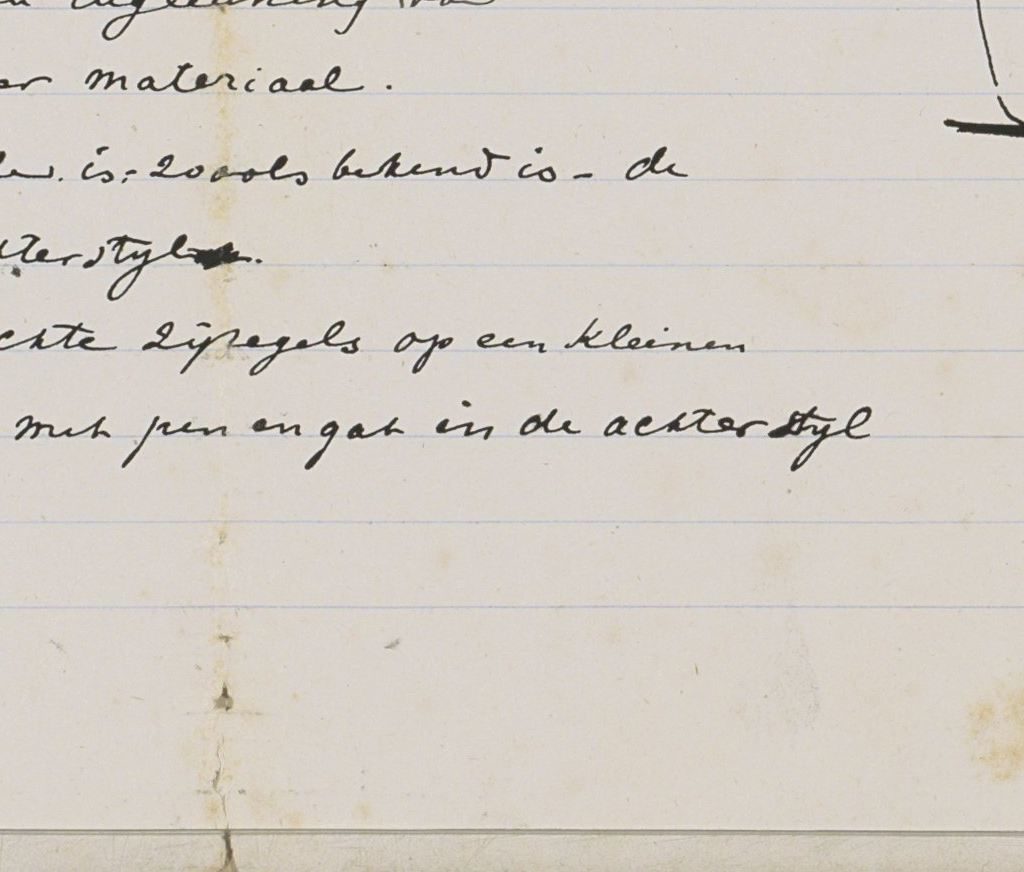 er materiaal.
is - zooals bekend is - de
achterstyl
zijregels op een kleinen
met pen en gat in de achterstyl